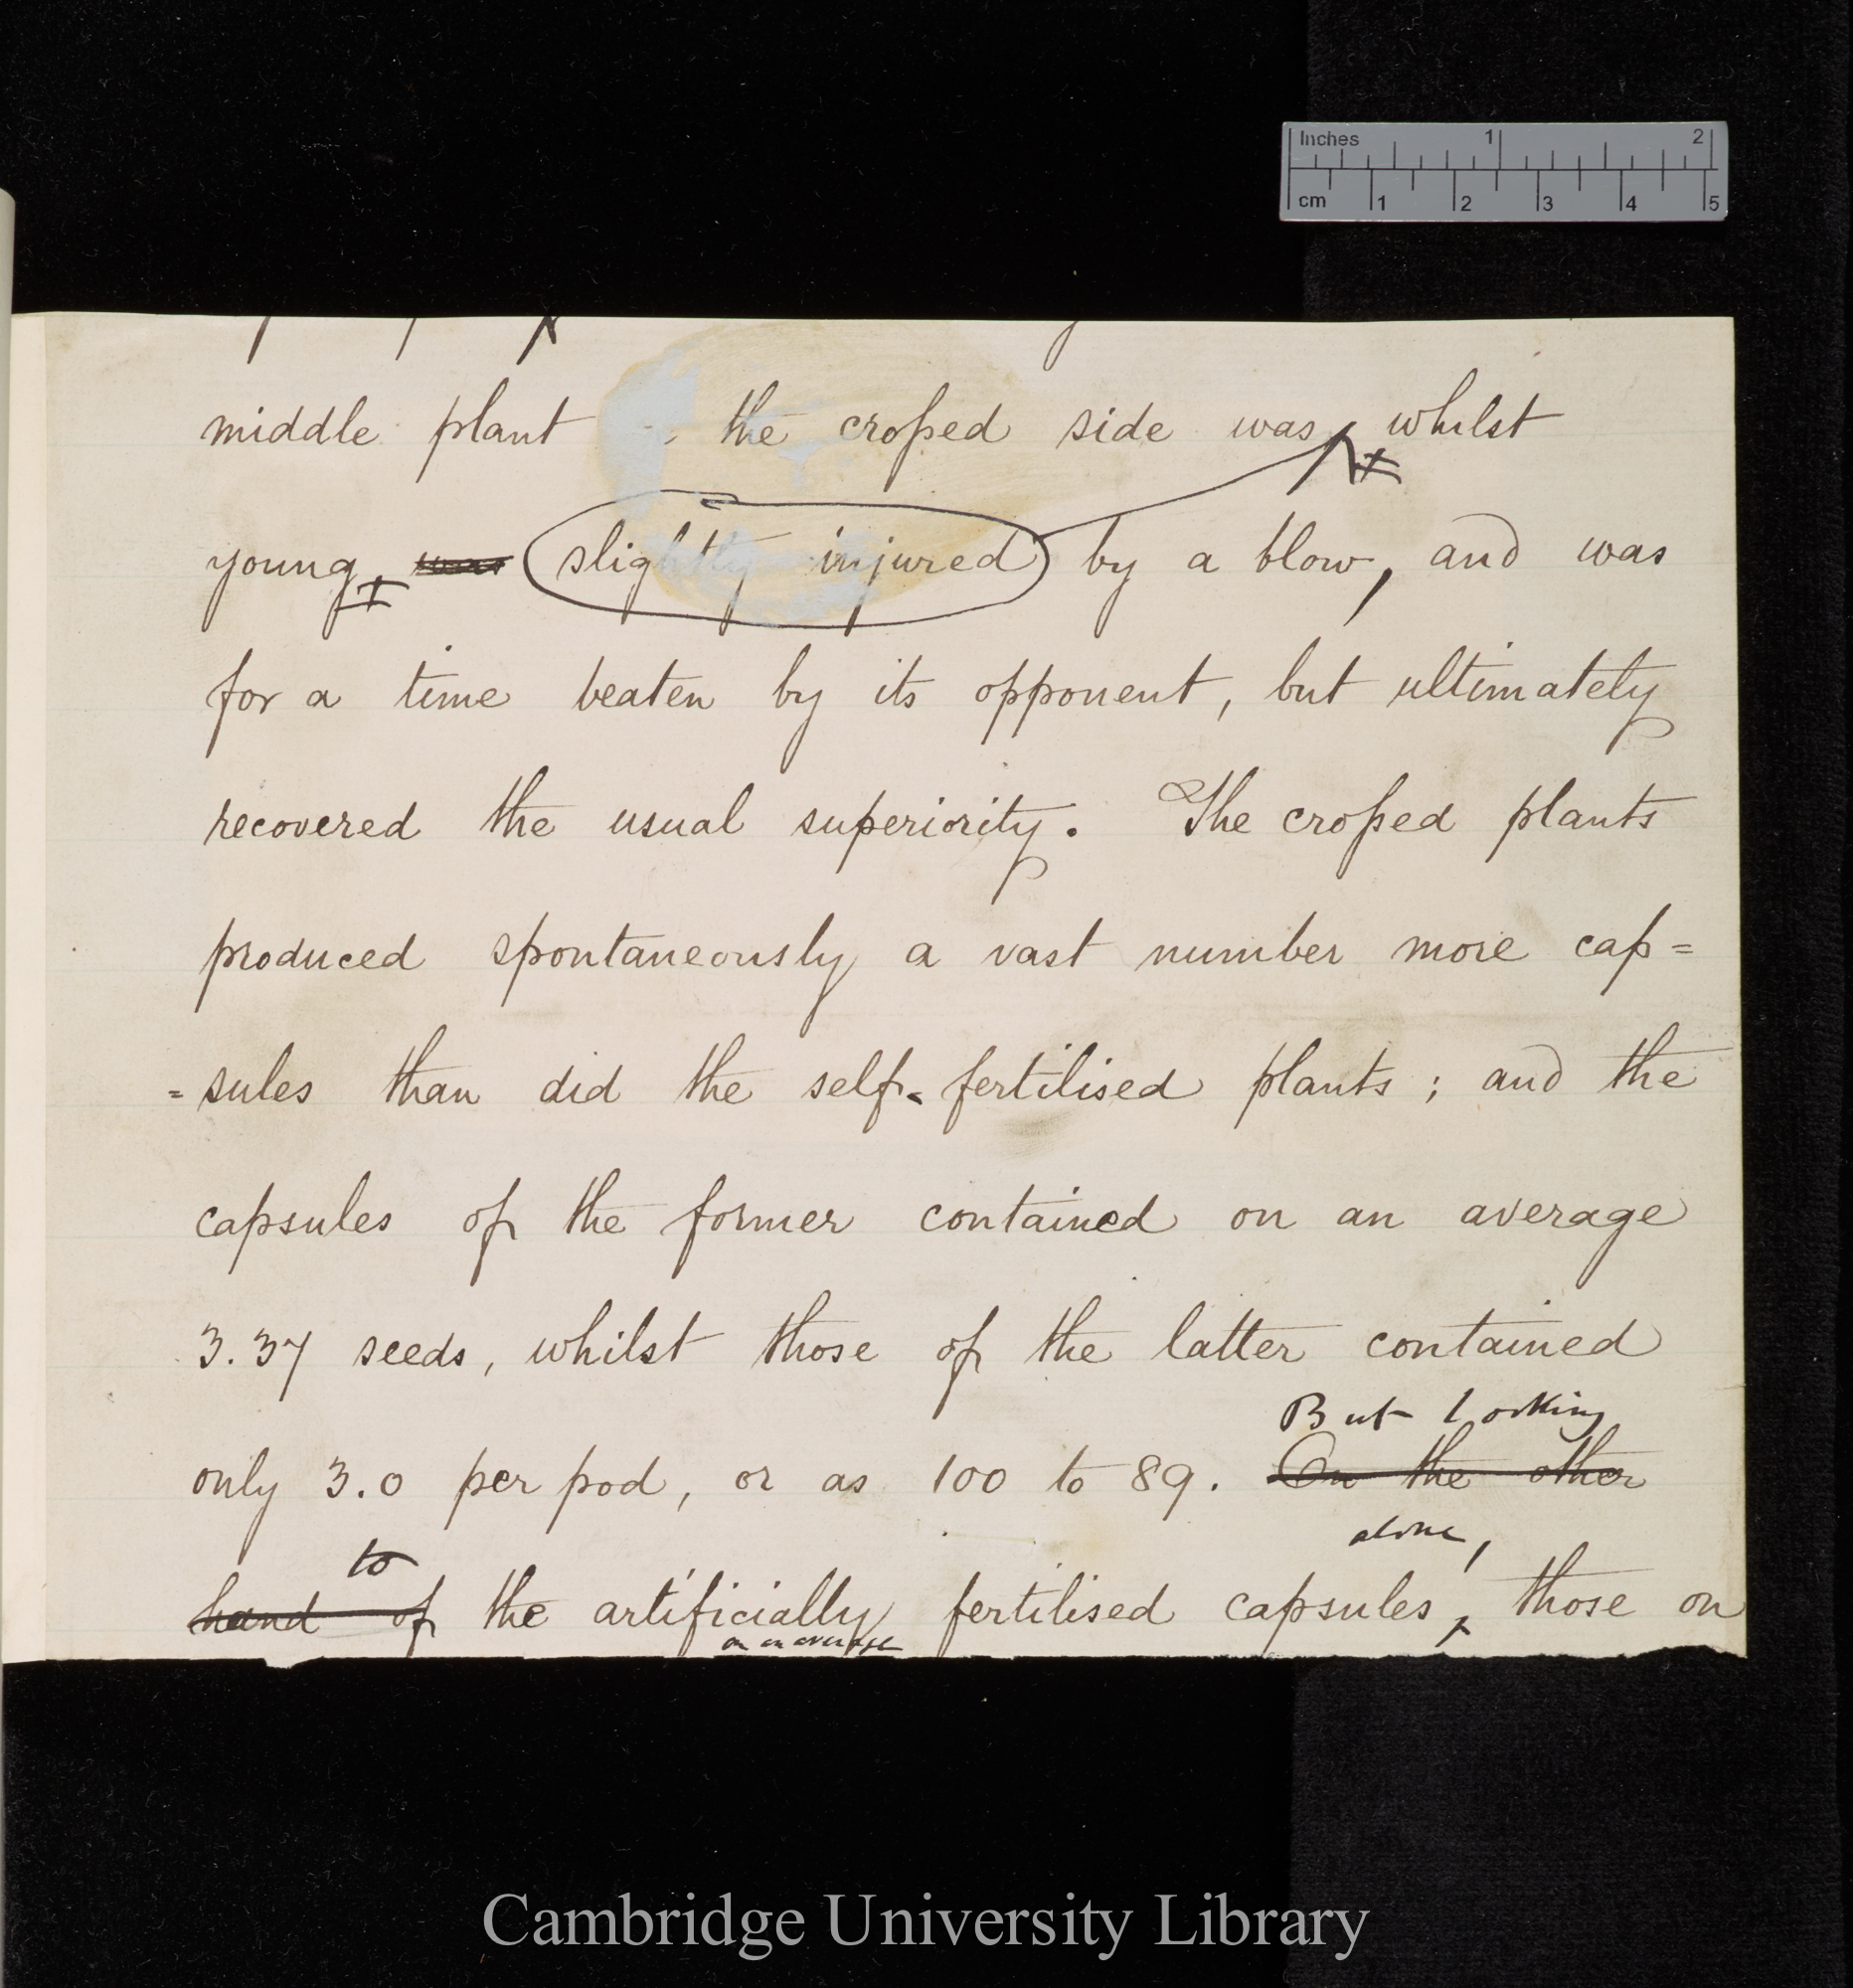 Inches 1 2
cm 1 2 3 4 5
middle plant the croſsed side was whilst
young, was slightly injured by a blow, and was
for a time beaten by its opponent, but ultimately
recovered the usual superiority. The croſsed plants
produced spontaneously a vast number more cap=
=sules than did the self-fertilised plants; and the
capsules of the former contained on an average
3.37 seeds, whilst those of the latter contained
But looking
only 3.0 per pod, or as 100 to 89. On the other
to alone,
hand of the artificially fertilised capsules, those on
on an average
Cambridge University Library